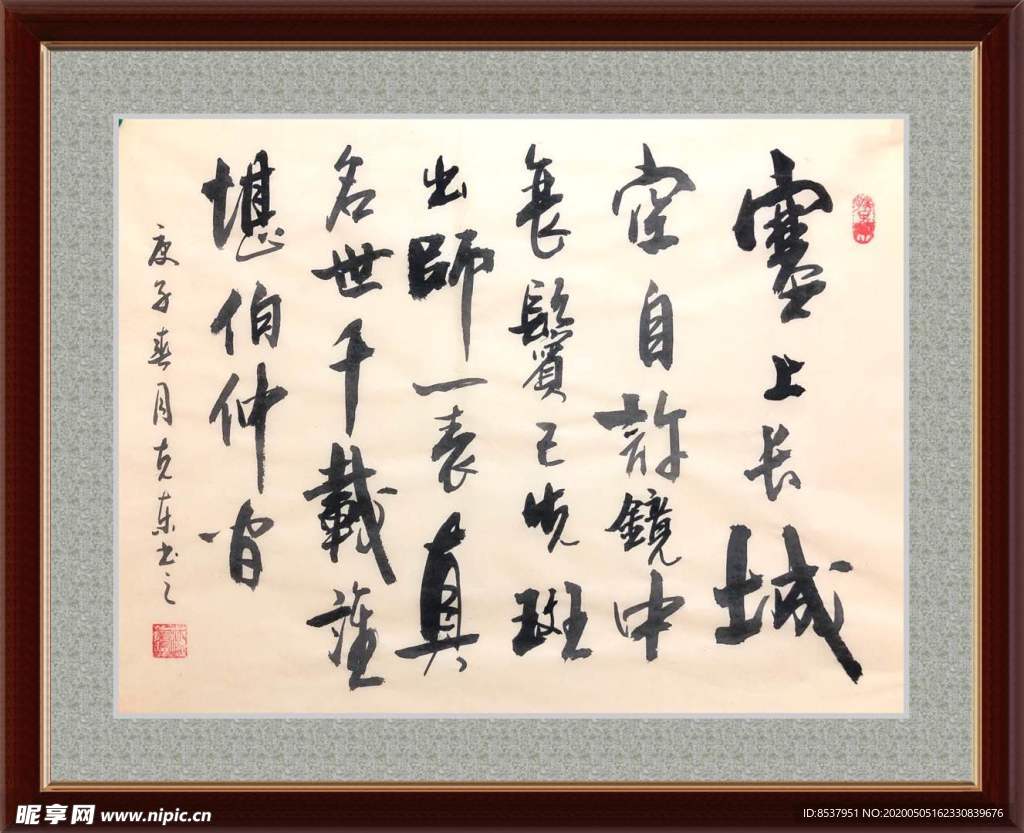 塞上长城
空自許鏡中
衰鬢已先斑
出師一表真
名世千載誰
堪伯仲间
庚子春月克东书之
昵享网 www.nipic.cn
ID:8537951 NO:20200505162330839676